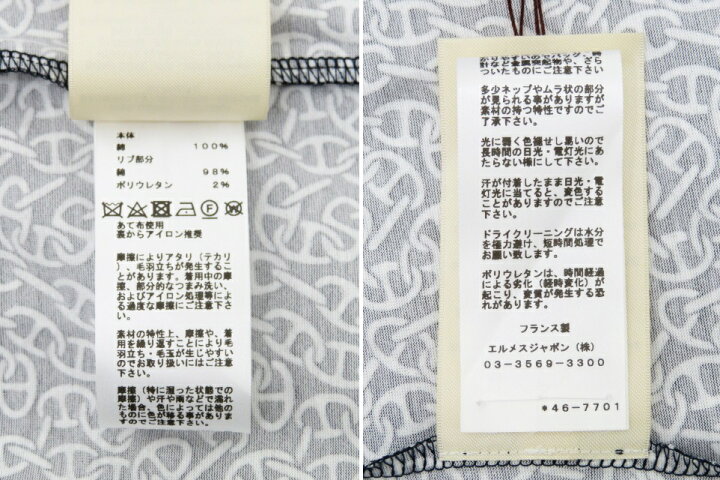 本体
綿 100%
リブ部分
綿 98%
ポリウレタン 2%
あて布使用
裏からアイロン推奨
摩擦によりアタリ(テカリ
)、毛羽立ちが発生するこ
とがあります。着用中の摩
擦、部分的なつまみ洗い、
およびアイロン処理等によ
る過度な摩擦にご注意下さ
い。
素材の特性上、摩擦や、着
用を繰り返すことにより毛
羽立ち・毛玉が生じやすい
のでお取り扱いにはご注意
下さい。
摩擦(特に湿った状態での
摩擦)や汗や雨などで濡れ
た場合、色によっては他の
ものに色が移る事がありま
すのでご注意下さい。
針など金属突起物や、ざら
ついたものにご注意下さい
多少ネップやムラ状の部分
が見られる事がありますが
素材の持つ特性ですのでご
了承下さい。
光に弱く色褪せし易いので
長時間の日光・電灯光にあ
たらない様にして下さい。
汗が付着したまま日光・電
灯光に当てると、変色する
ことがありますのでご注意
下さい。
ドライクリーニングは水分
を極力避け、短時間処理で
お願い致します。
ポリウレタンは、時間経過
による劣化(経時変化)が
起こり、変質が発生する恐
れがあります。
フランス製
エルメスジャポン(株)
03-3569-3300
*46-7701